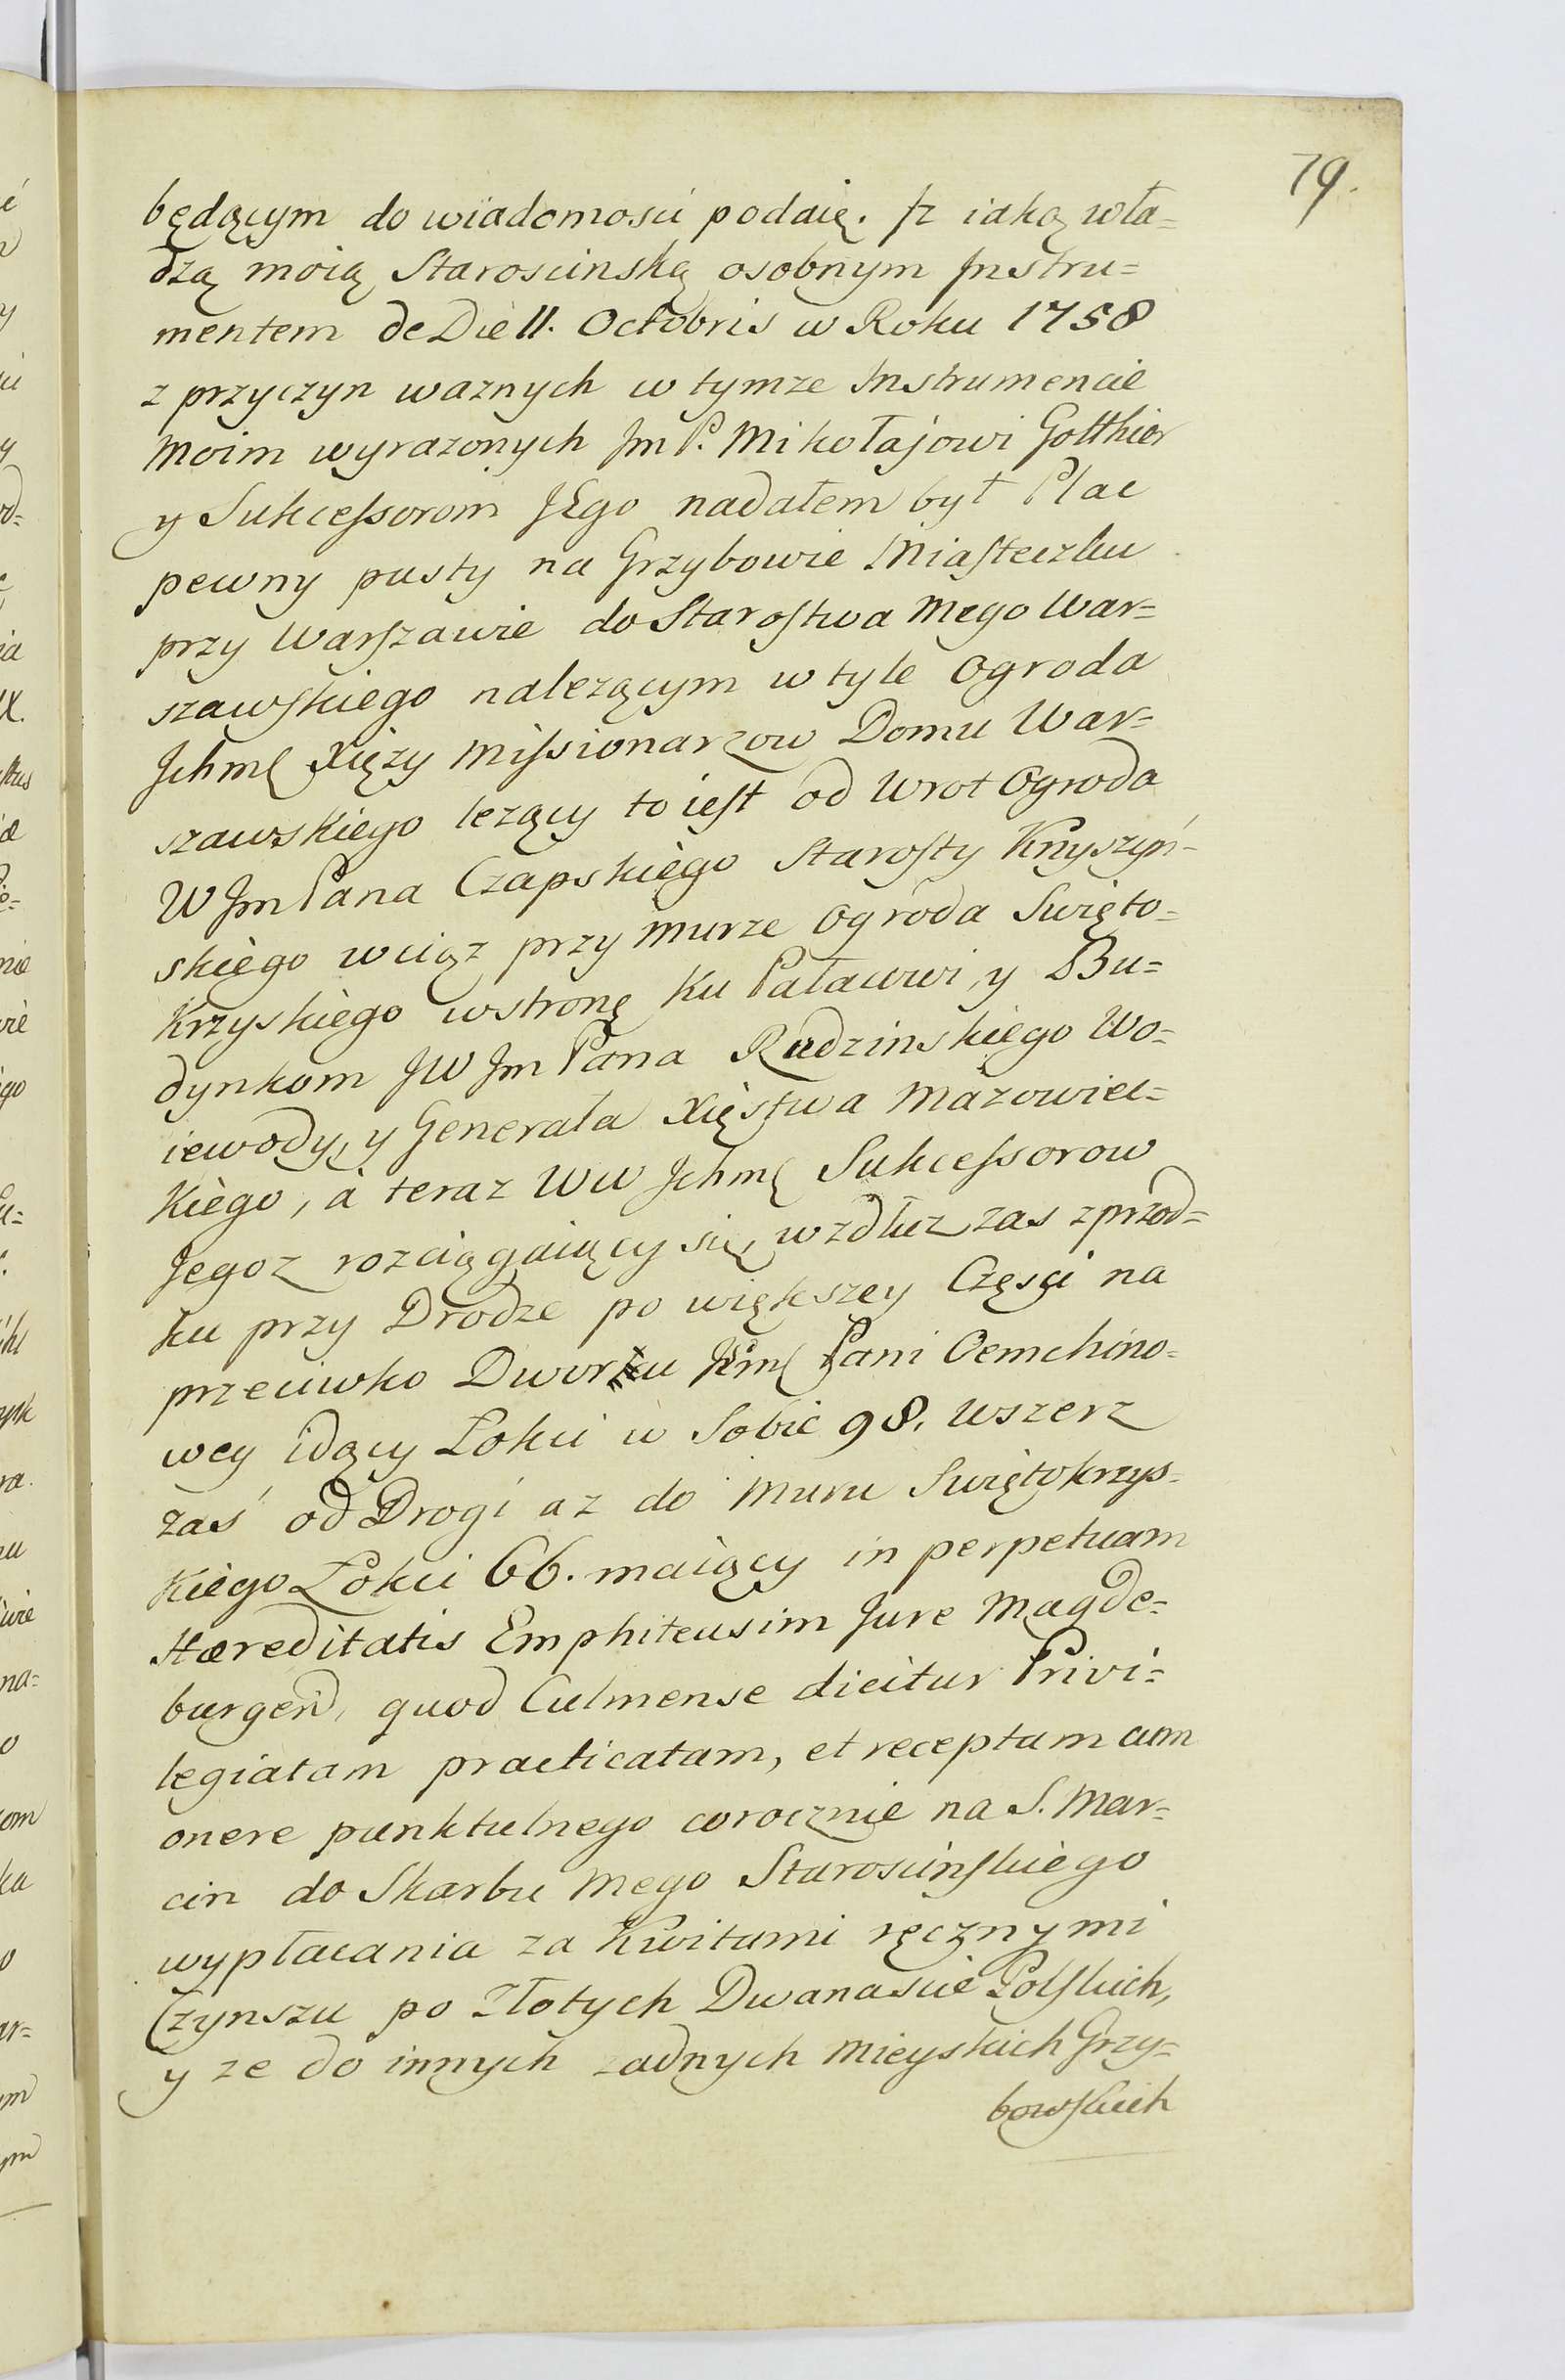 79.
będącym do wiadomości podaię. Iz iaką wła=
dzą moią Starościnską osobnym Instru=
mentem de Die 11. Octobris w Roku 1758
z przyczyn waznych w tymze Instrumencie
moim wyrazonych Jm P. Mikołajowi Gotthier
y Sukcessorom JEgo nadałem był Plac
pewny pusty na Grzybowie Miasteczku
przy Warszawie do Starostwa mego War=
szawskiego nalezącym w tyle Ogroda
Jchmć Xięzy Missionarzow Domu War=
szawskiego lezący to iest od Wrot Ogroda
W Jm Pana Czapskiego Starosty Knyszyń=
skiego wciąz przy murze Ogroda Swięto=
Krzyskiego w stronę Ku Pałacowi, y Bu=
dynkom JW Jm Pana Rudzinskiego Wo=
iewody, y Generała Xięstwa Mazowiec=
Kiego, à teraz WW Jchmć Sukcessorow
Jegoz rozciągaiący się, wzdłuz zas z przod=
ku przy Drodze po większey Częsci na
przeciwko Dworku Jeimć Pani Oemchino=
wey idący Łokci w Sobie 98. wszerz
zaś od Drogi az do Muru Swiętokrzys=
Kiego Łokci 66. maiący in perpetuam
Hæreditatis Emphiteusim Jure Magde=
burgen, quod Culmense dicitur Privi=
legiatam practicatam, et receptam cum
onere punktulnego corocznie na S. Mar=
cin do Skarbu mego Starościnskiego
wypłacania za Kwitami ręcznymi
Czynszu po Złotych Dwanascie Polskich,
y ze do innych zadnych Mieyskich Grzy=
bowskich